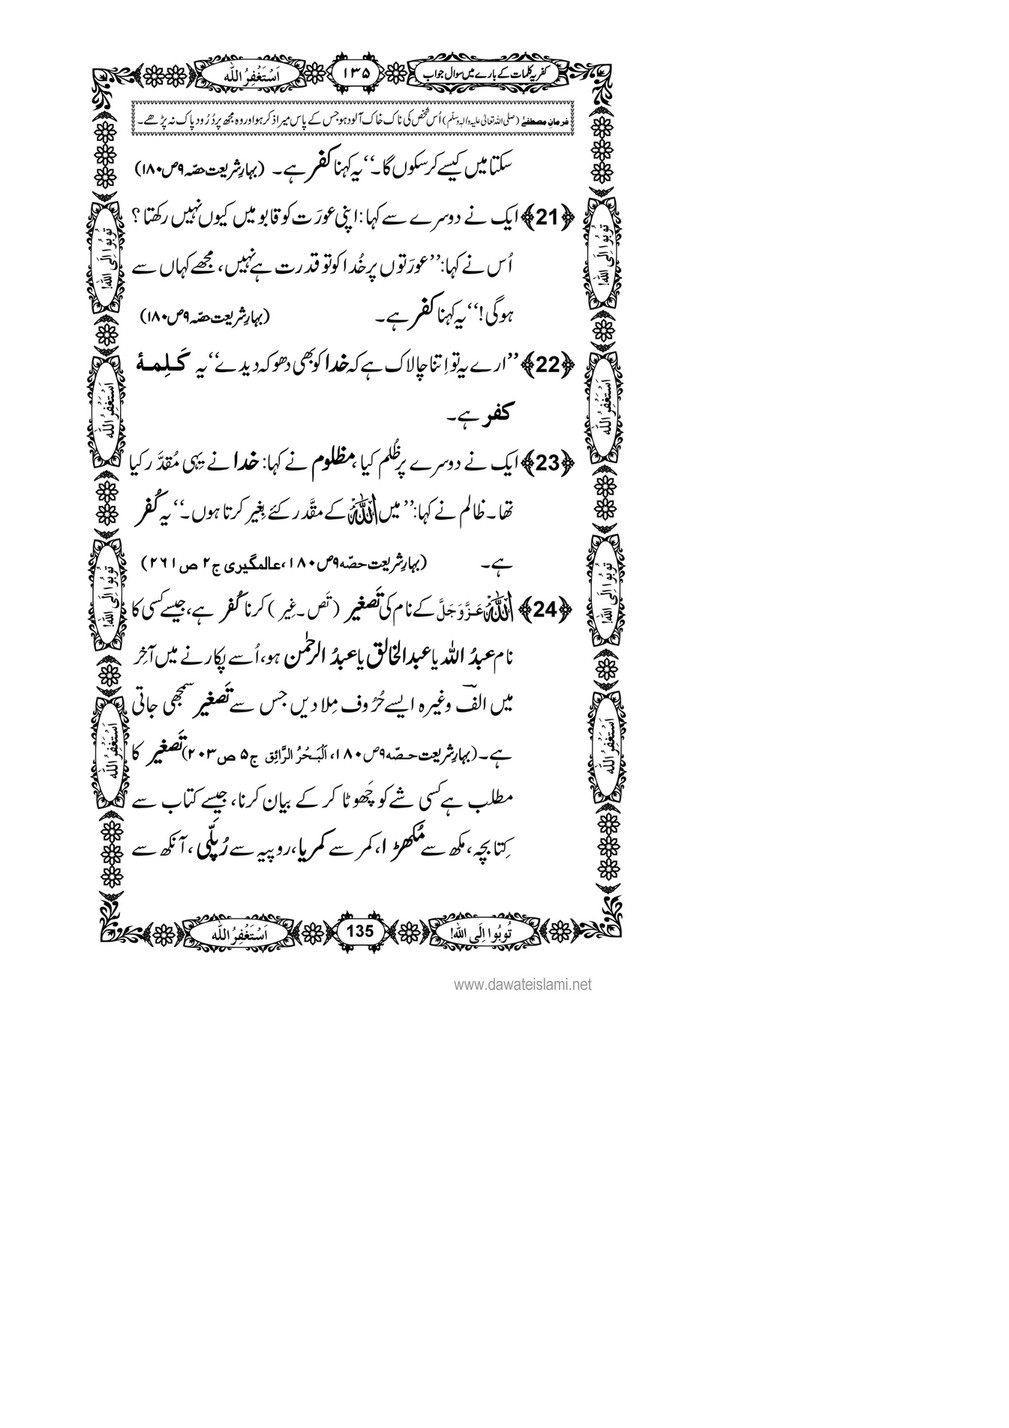 کفریہ کلمات کے بارے میں سوال جواب
۱۳۵
اَسْتَغْفِرُ اللہ
فرمانِ مصطفےٰ (صلی اللہ تعالیٰ علیہ والہ وسلم) اُس شخص کی ناک خاک آلود ہو جس کے پاس میرا ذکر ہو اور وہ مجھ پر دُرُودِ پاک نہ پڑھے۔
سکتا میں کیسے کر سکوں گا۔‘‘ یہ کہنا کفر ہے۔ (بہارِ شریعت حصّہ ۹ ص ۱۸۰)
﴿21﴾ ایک نے دوسرے سے کہا: اپنی عورَت کو قابو میں کیوں نہیں رکھتا؟
اُس نے کہا: ’’عورَتوں پر خُدا کو تو قدرت ہے نہیں، مجھے کہاں سے
ہوگی!‘‘ یہ کہنا کفر ہے۔ (بہارِ شریعت حصّہ ۹ ص ۱۸۰)
﴿22﴾ ’’ارے یہ تو اِتنا چالاک ہے کہ خدا کو بھی دھوکہ دیدے‘‘ یہ کَلِمۂ
کفر ہے۔
﴿23﴾ ایک نے دوسرے پر ظُلم کیا، مظلوم نے کہا: خدا نے یہی مُقدَّر کیا
تھا۔ ظالم نے کہا: ’’میں اللہ کے مقَّدر کئے بِغیر کرتا ہوں۔‘‘ یہ کُفر
ہے۔ (بہارِ شریعت حصّہ ۹ ص ۱۸۰، عالمگیری ج ۲ ص ۲۶۱)
﴿24﴾ اللہ عَزَّوَجَلَّ کے نام کی تَصغیر (تَص۔غِیر) کرنا کُفر ہے، جیسے کسی کا
نام عبدُ اللہ یا عبدالخالق یا عبدُ الرحمٰن ہو، اُسے پکارنے میں آخِر
میں الف وغیرہ ایسے حُرُوف مِلا دیں جس سے تَصغیر سمجھی جاتی
ہے۔ (بہارِ شریعت حصّہ ۹ ص ۱۸۰، اَلْبَحْرُ الرَّائِق ج ۵ ص ۲۰۳) تَصغیر کا
مطلب ہے کسی شے کو چھوٹا کر کے بیان کرنا، جیسے کتاب سے
کِتابچہ، مکھ سے مُکھڑا، کمر سے کمریا، روپیہ سے رُپلّی، آنکھ سے
تُوبُوا اِلَی اللہ!
اَسْتَغْفِرُ اللہ
تُوبُوا اِلَی اللہ!
اَسْتَغْفِرُ اللہ
تُوبُوا اِلَی اللہ!
اَسْتَغْفِرُ اللہ
تُوبُوا اِلَی اللہ!
اَسْتَغْفِرُ اللہ
تُوبُوا اِلَی اللہ!
135
اَسْتَغْفِرُ اللہ
www.dawateislami.net